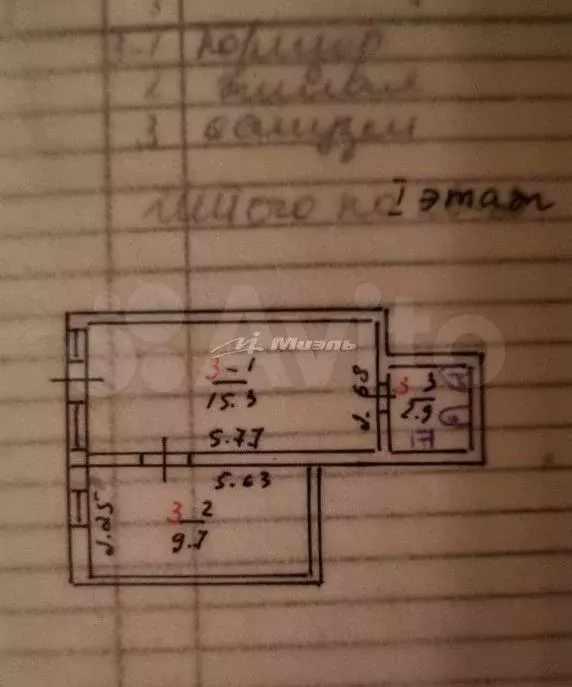 3
3-1 коридор
2 жилая
3 санузел
I этаж
Avito
Миэль
3-1
15.3
2.68
5.77
3 3
2.9
5.63
2.25
3 2
9.7